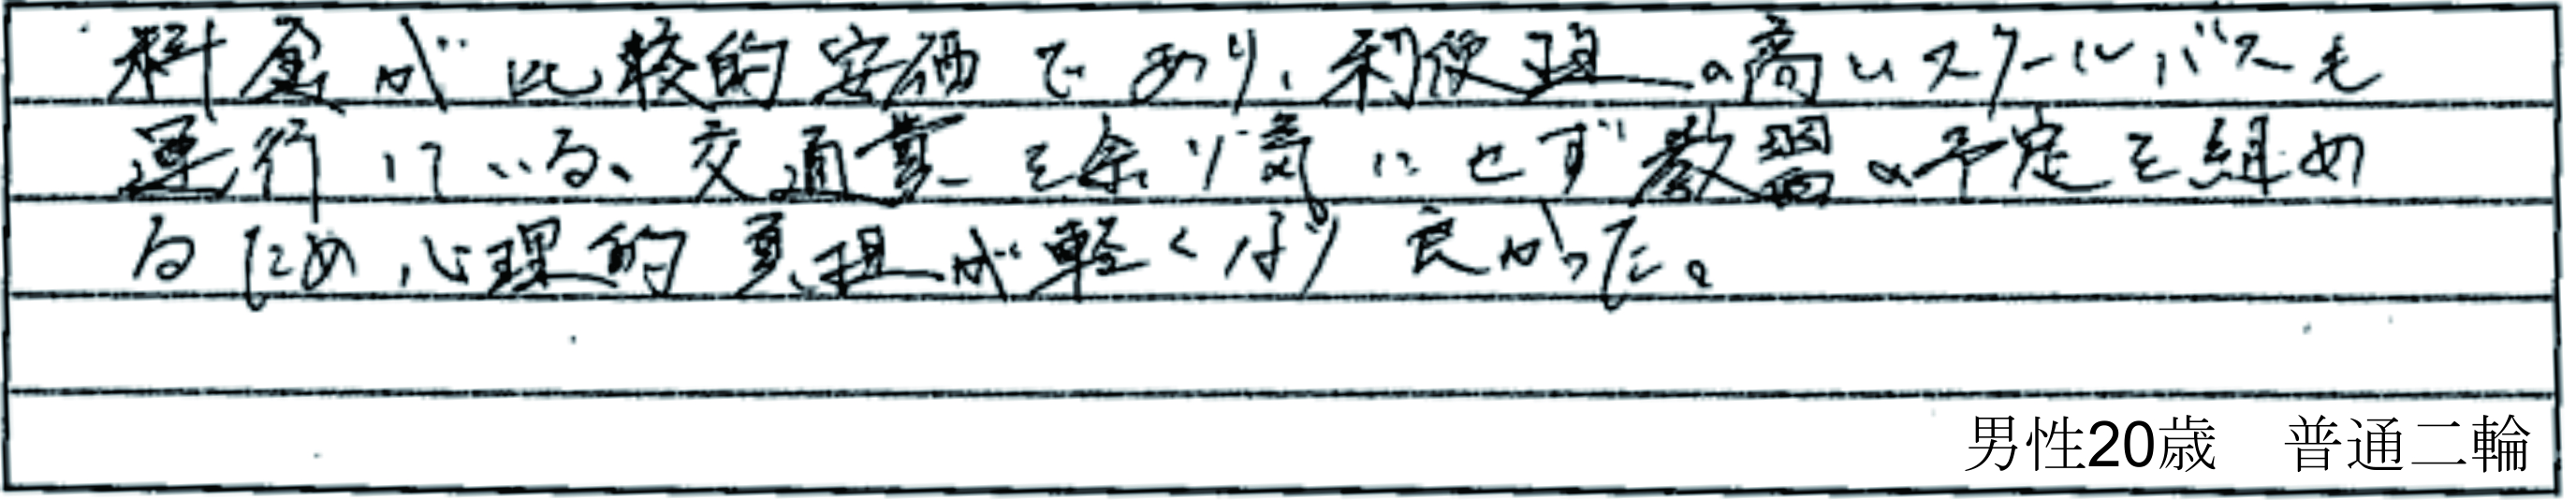 料金が比較的安価であり、利便性の高いスクールバスも
運行している。交通費を余り気にせず教習の予定を組め
るため心理的負担が軽くなり良かった。
男性20歳　普通二輪